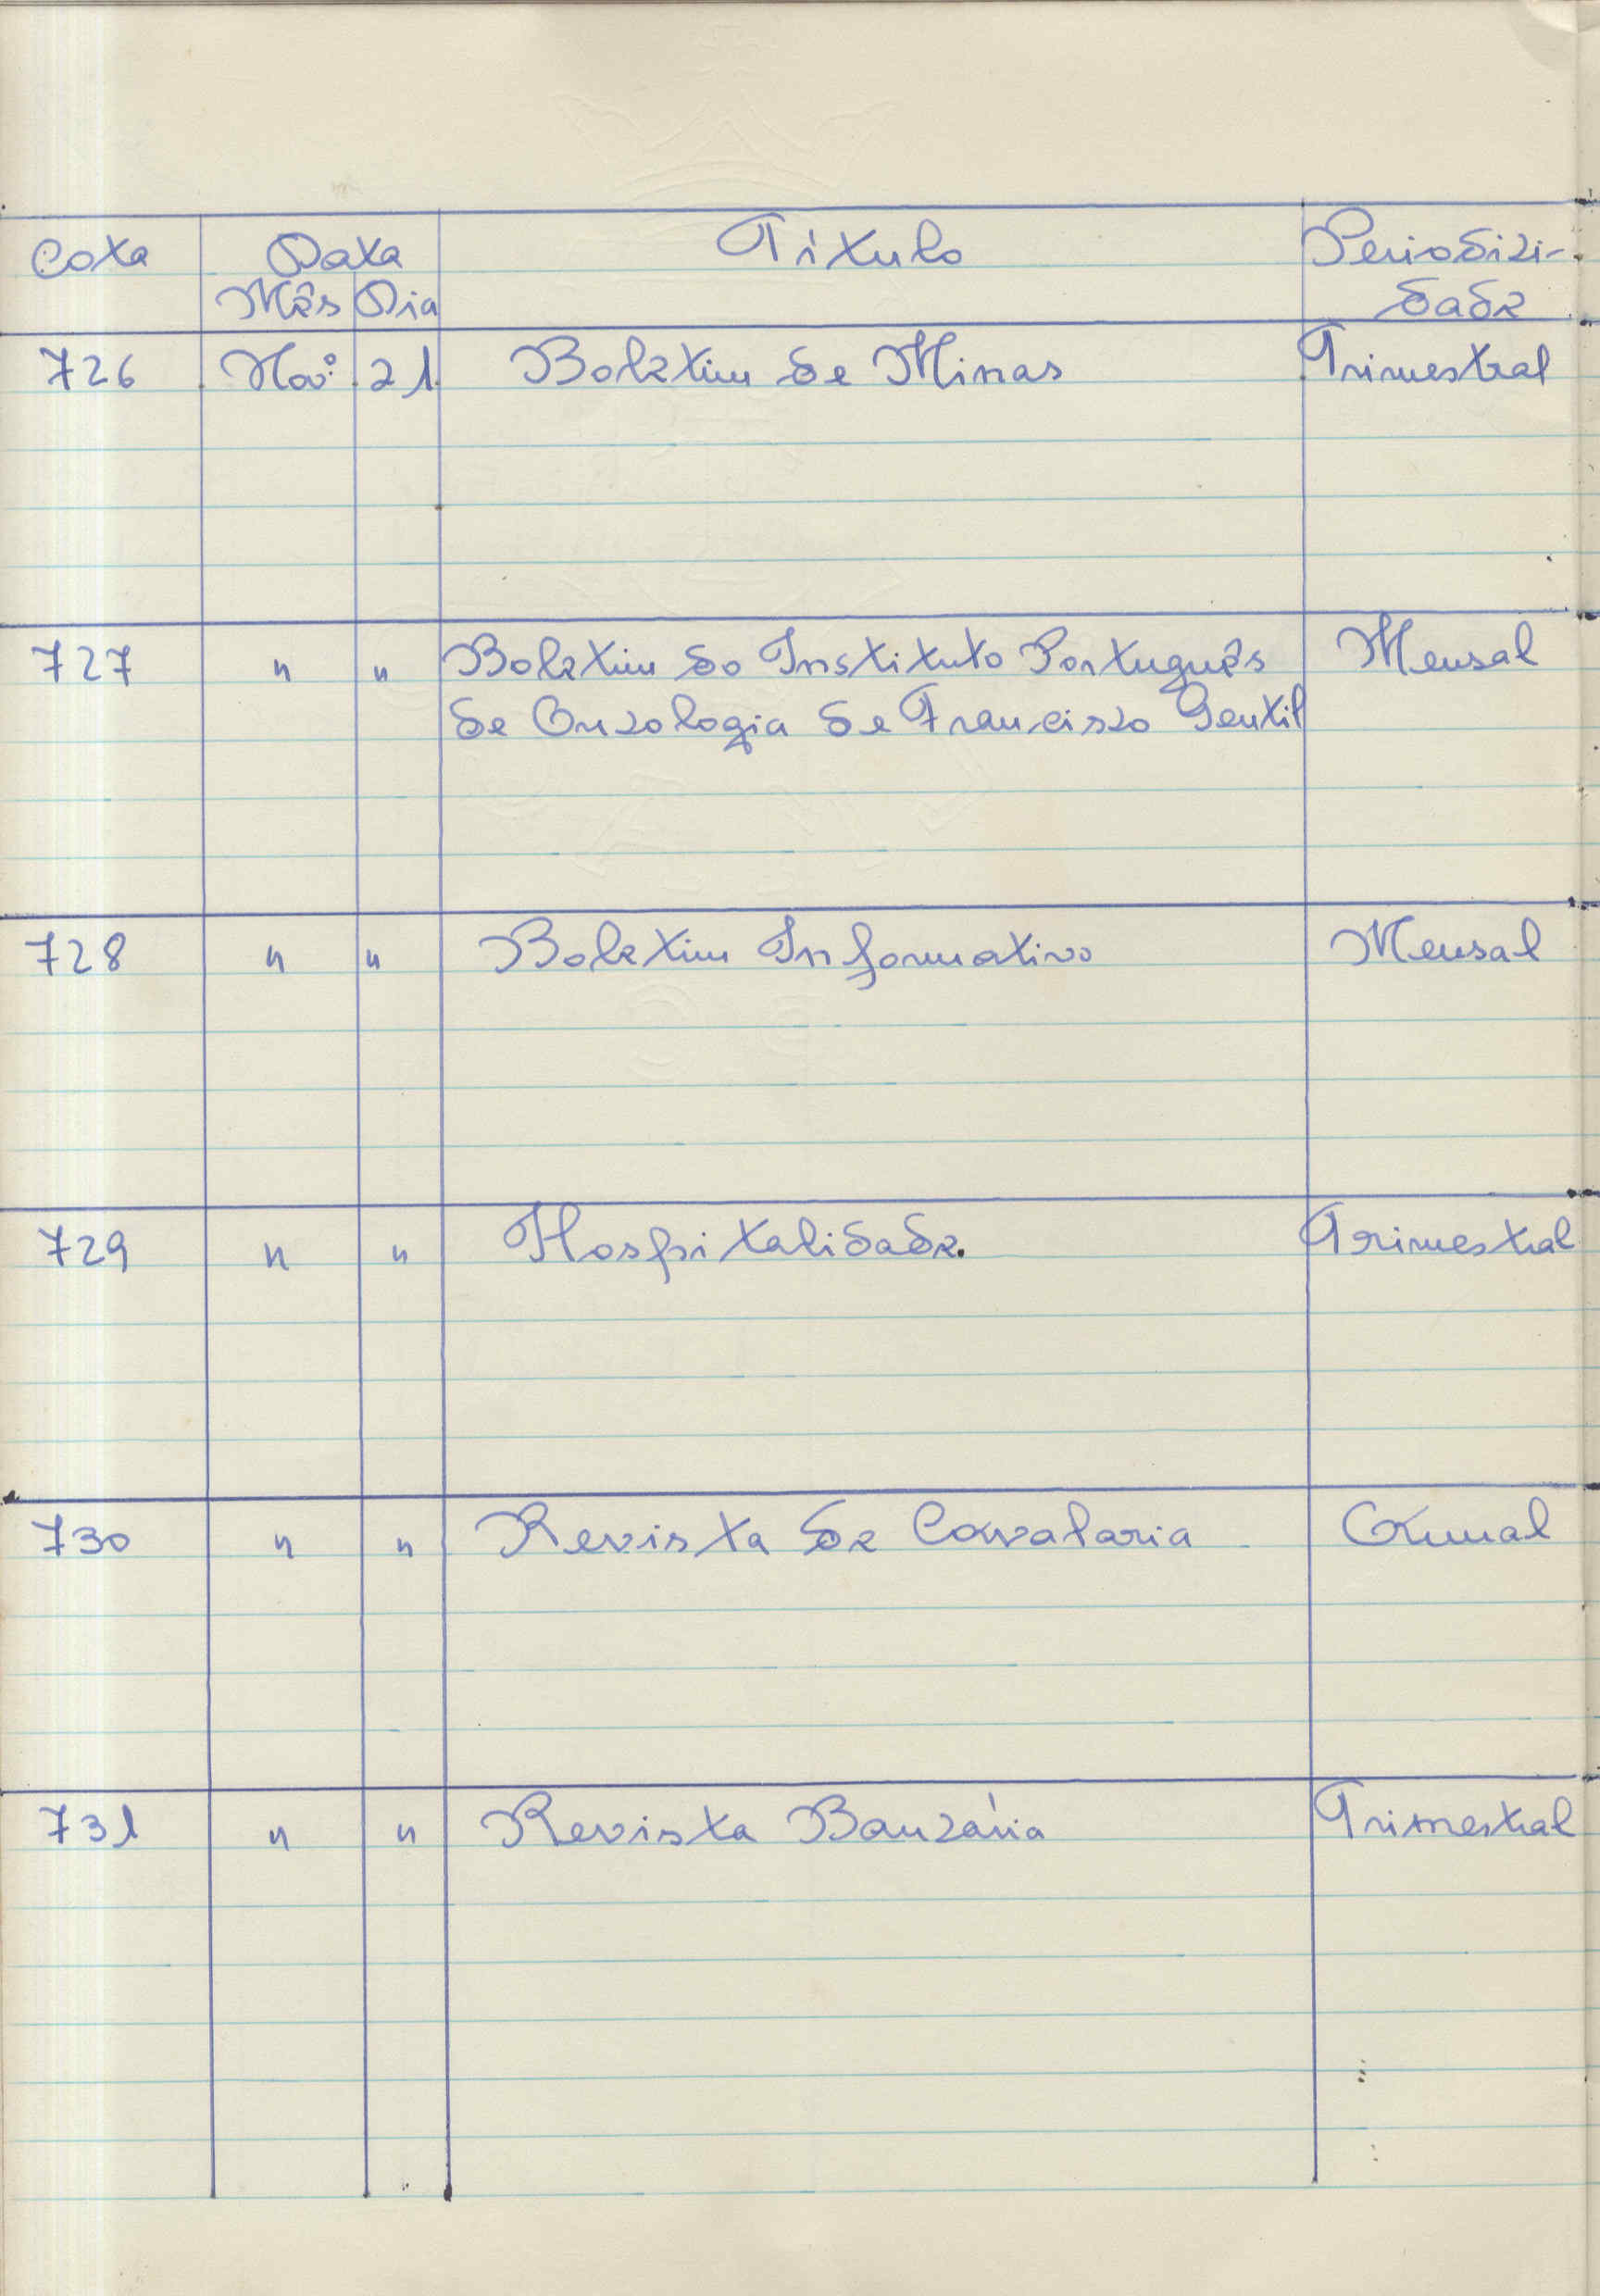 Cota Data Título Periodici-
Mês Dia dade
726 Nov.º 21 Boletim de Minas Trimestral
727 " " Boletim do Instituto Português Mensal
de Oncologia de Francisco Gentil
728 " " Boletim Informativo Mensal
729 " " Hospitalidade. Trimestral
730 " " Revista de Cavalaria Anual
731 " " Revista Bancária Trimestral